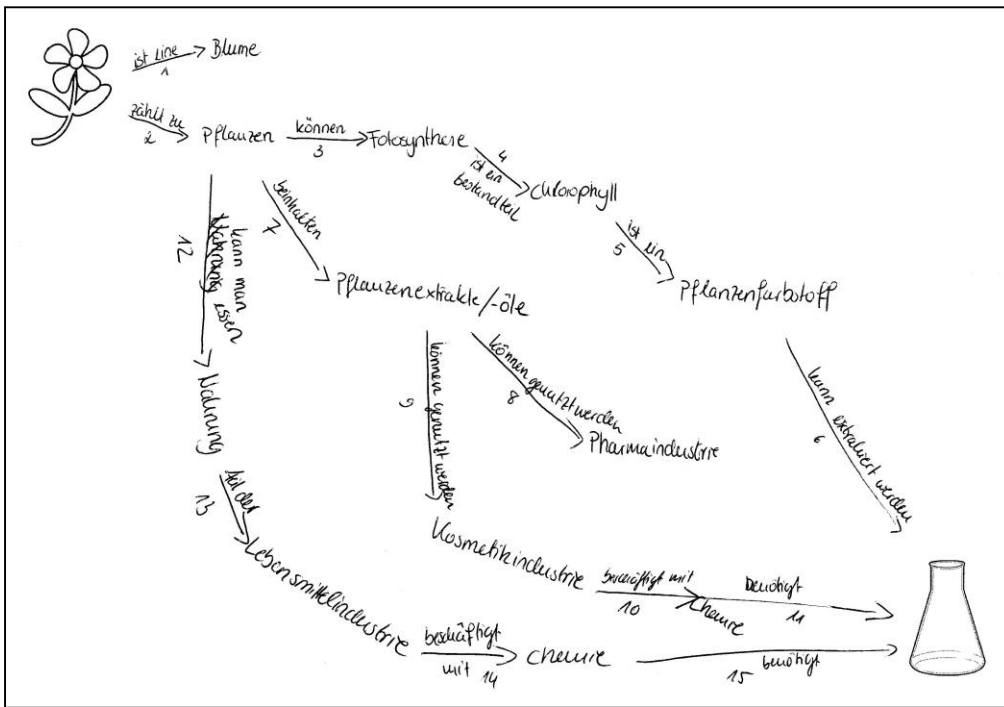 ist eine
1
Blume
zählt zu
2
Pflanzen
können
3
Fotosynthese
4
ist ein
bestandteil
Chlorophyll
ist ein
5
Pflanzenfarbstoff
kann extrahiert werden
6
beinhalten
7
Pflanzenextrakte/-öle
können genutzt werden
8
Pharmaindustrie
können genutzt werden
9
Kosmetikindustrie
beschäftigt mit
10
Chemie
benötigt
11
kann man
essen
12
Nahrung
13
Lebensmittelindustrie
beschäftigt
mit 14
Chemie
15 benötigt